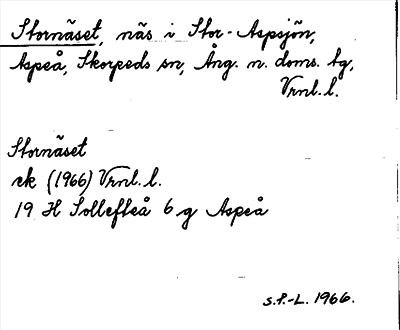 Stornäset, näs i Stor-Aspsjön,
Aspeå, Skorpeds sn, Ång. n. doms. tg,
Vrnl.l.
Stornäset
ek (1966) Vrnl.l.
19 H Sollefteå 6 g Aspeå
S.P.-L. 1966.